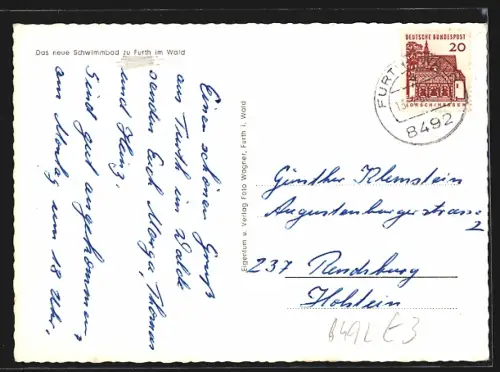 Das neue Schwimmbad zu Furth im Wald
Einen schönen Gruß
aus Furth im Walde
senden Euch Marga, Thomas
und Heinz.
Sind gut angekommen,
am Montag um 18 Uhr.
Eigentum u. Verlag Foto Wagner, Furth i. Wald
DEUTSCHE BUNDESPOST
20
LORSCH/HESSEN
FURTH
8492
Günther Klemstein
Augustenburgerstrasse
2
237 Rendsburg
Holstein
8492 E3